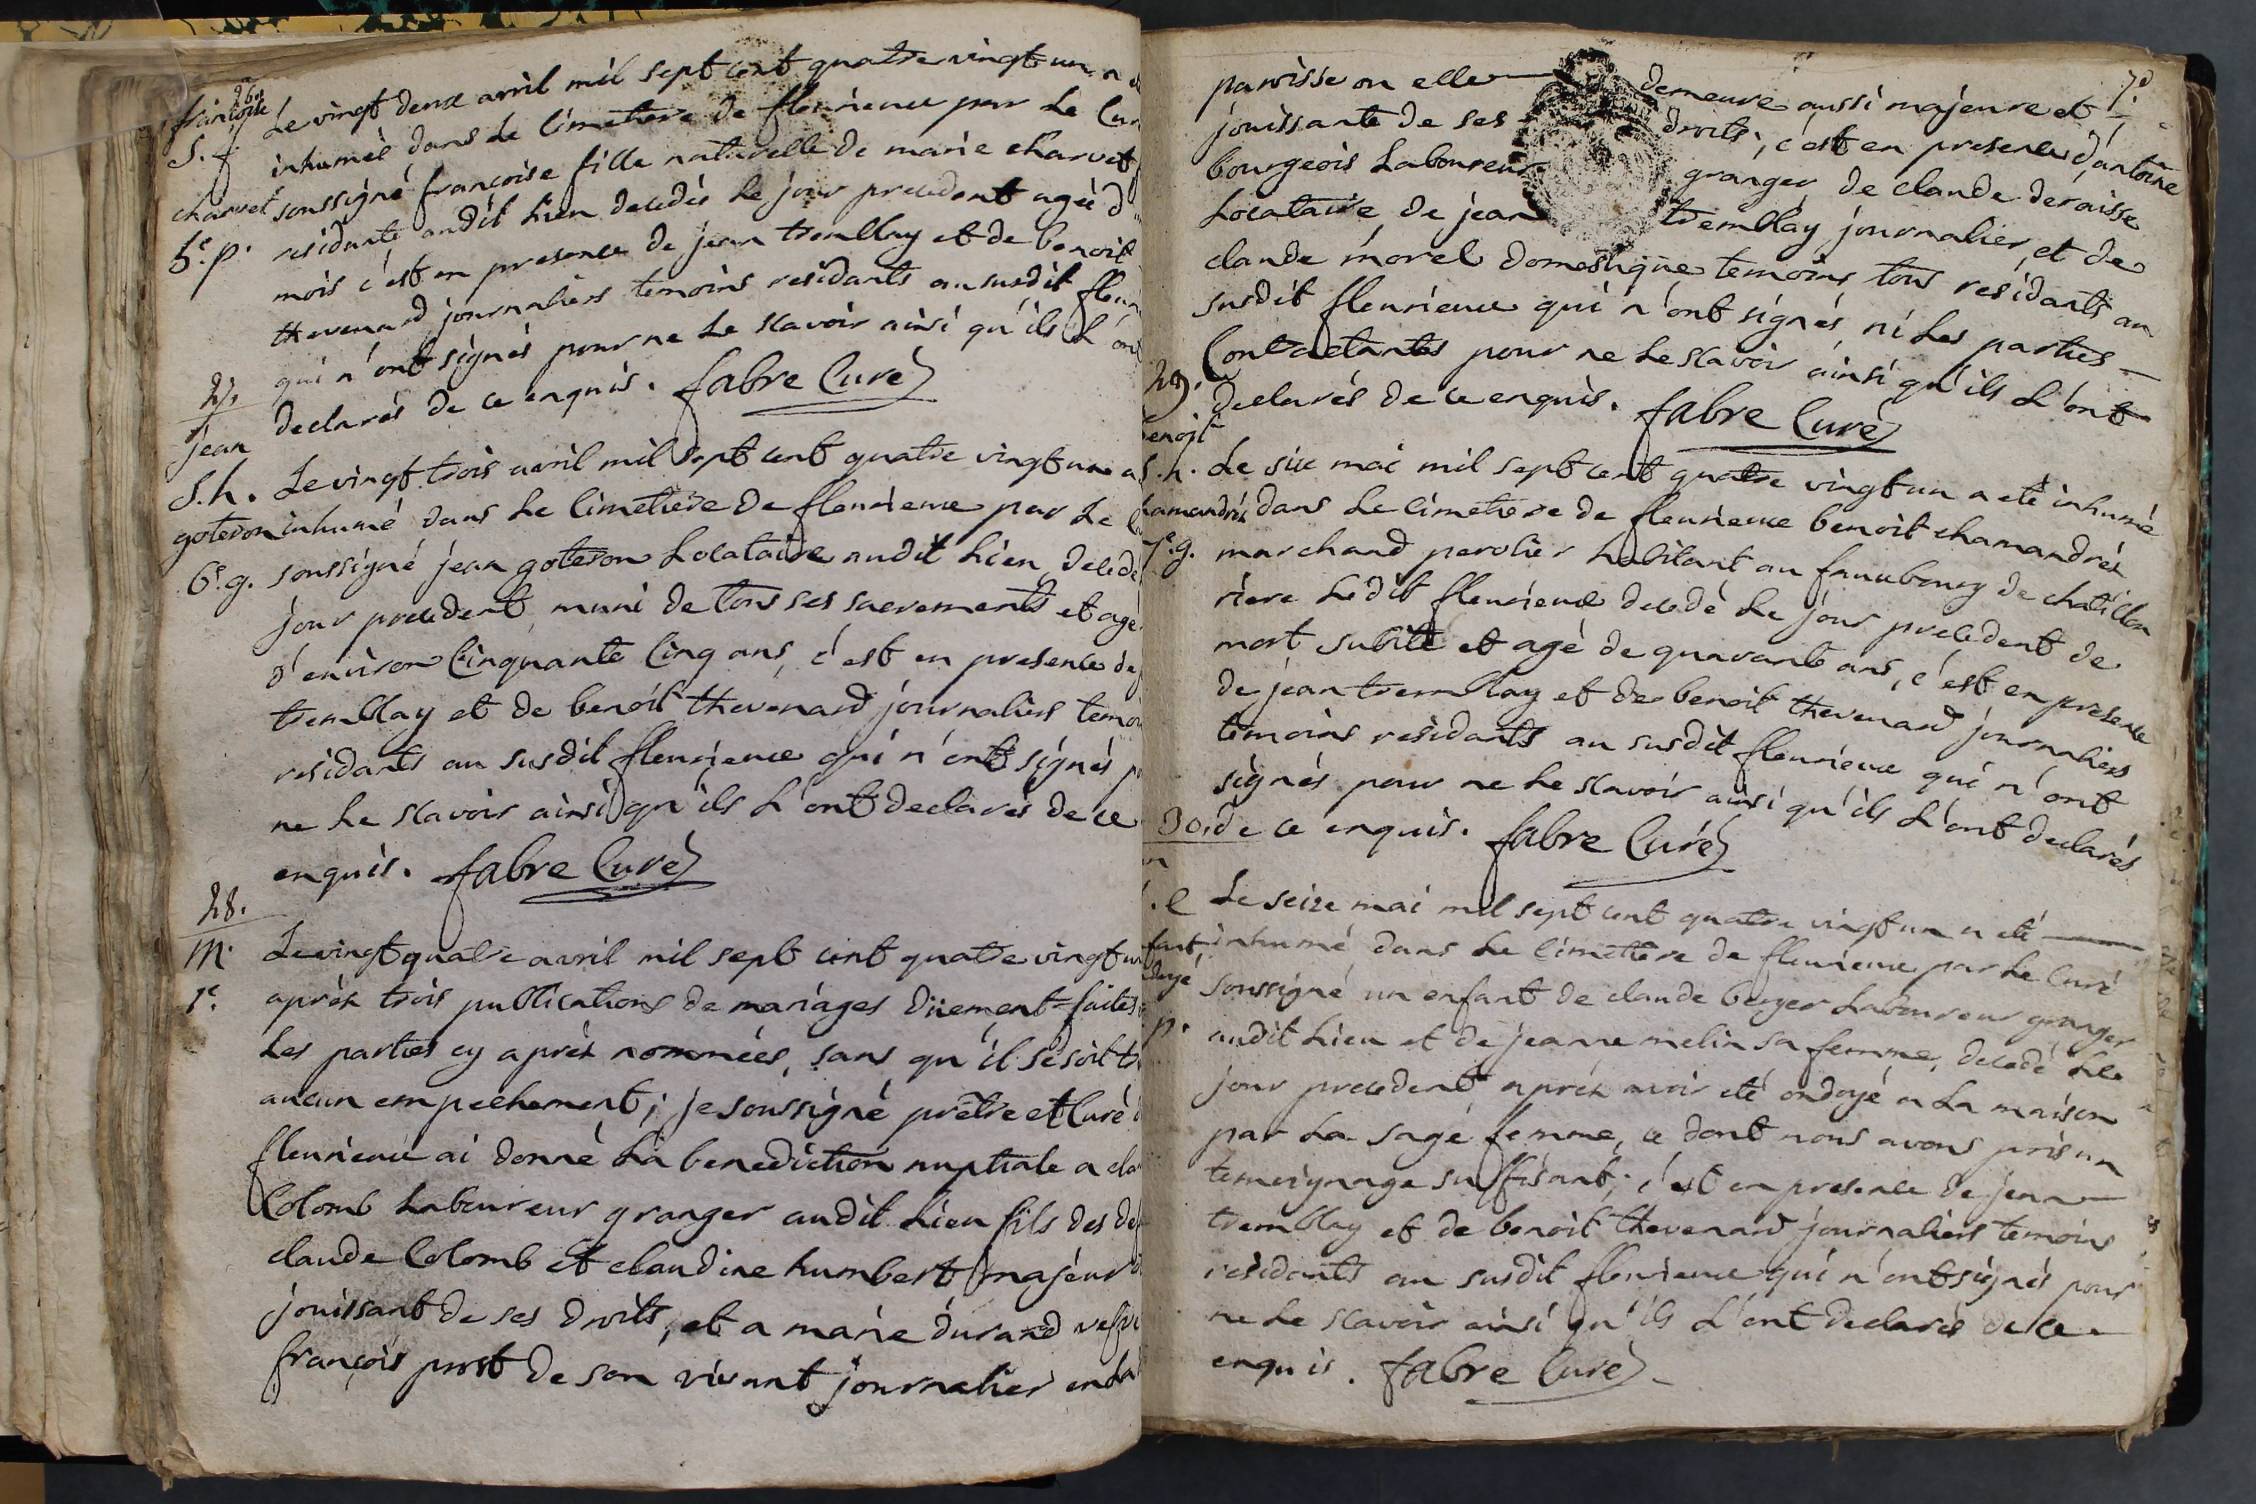 26.
françoise
S. f.
charvet
5.e p.
Le vingt deux avril mil sept cent quatre vingt un a
inhumée dans le Cimetiere de fleurieux par le Cur
soussigné françoise fille naturelle de marie charvet
residante audit lieu decedée le jour precedent agée d
mois c'est en presence de jean tremblay et de benoit
thevenard journaliers temoins residants au susdit fleur
qui n'ont signés pour ne le scavoir ainsi qu'ils l'ont
declarés de ce enquis. fabre Curé
27.
jean
S. h.
goteron
6.e g.
Le vingt trois avril mil sept cent quatre vingt un a
inhumé dans le Cimetiere de fleurieux par le
soussigné jean goteron Locataire audit lieu decedé
jour precedent, muni de tous ses sacrements et agé
d'environ Cinquante Cinq ans, c'est en presence de
tremblay et de benoit thevenard journaliers temoi
residants au susdit fleurieux qui n'ont signés p
ne le scavoir ainsi qu'ils l'ont declarés de ce
enquis. fabre Curé
28.
M.
1.e
Le vingt quatre avril mil sept cent quatre vingt un
aprés trois publications de mariages düement faites
les parties cy aprés nommées, sans qu'il se soit tr
aucun empechement; je soussigné prêtre et Curé
fleurieux ai donné la benediction nuptiale a cla
Colomb Laboureur granger audit lieu fils des def
claude Colomb et claudine humbert majeur
jouissant de ses droits, et a marie durand
françois prost de son vivant journalier
7.d
paroisse ou elle demeure aussi majeure et
jouissante de ses droits; c'est en presence d'antoine
bourgeois Laboureur granger, de claude deraisse
Locataire, de jean tremblay journalier, et de
claude morel domestique temoins tous residants au
susdit fleurieux qui n'ont signés ni les parties
Contractantes pour ne le scavoir ainsi qu'ils l'ont
declarés de ce enquis. fabre Curé
29.
benoit
S. h.
hamandrés
7.e g.
Le six mai mil sept cent quatre vingt un a eté inhumé
dans le Cimetiere de fleurieux benoit chamandrés
marchand perolier habitant au fauxbourg de chatillon
riere ledit fleurieux decedé le jour precedent de
mort subite et agé de quarante ans, c'est en presence
de jean tremblay et de benoit thevenard journaliers
temoins residants au susdit fleurieux qui n'ont
signés pour ne le scavoir ainsi qu'ils l'ont declarés
de ce enquis. fabre Curé
30.
p.
Le seize mai mil sept cent quatre vingt un a eté
inhumé dans le Cimetiere de fleurieux par le Curé
soussigné un enfant de claude berger Laboureur granger
audit lieu et de jeanne melin sa femme, decedé le
jour precedent aprés avoir eté ondoyé a la maison
par la sage femme, ce dont nous avons pris un
temoignage suffisant; c'est en presence de jean
tremblay et de benoit thevenard journaliers temoins
residants au susdit fleurieux qui n'ont signés pour
ne le scavoir ainsi qu'ils l'ont declarés de ce
enquis. fabre Curé